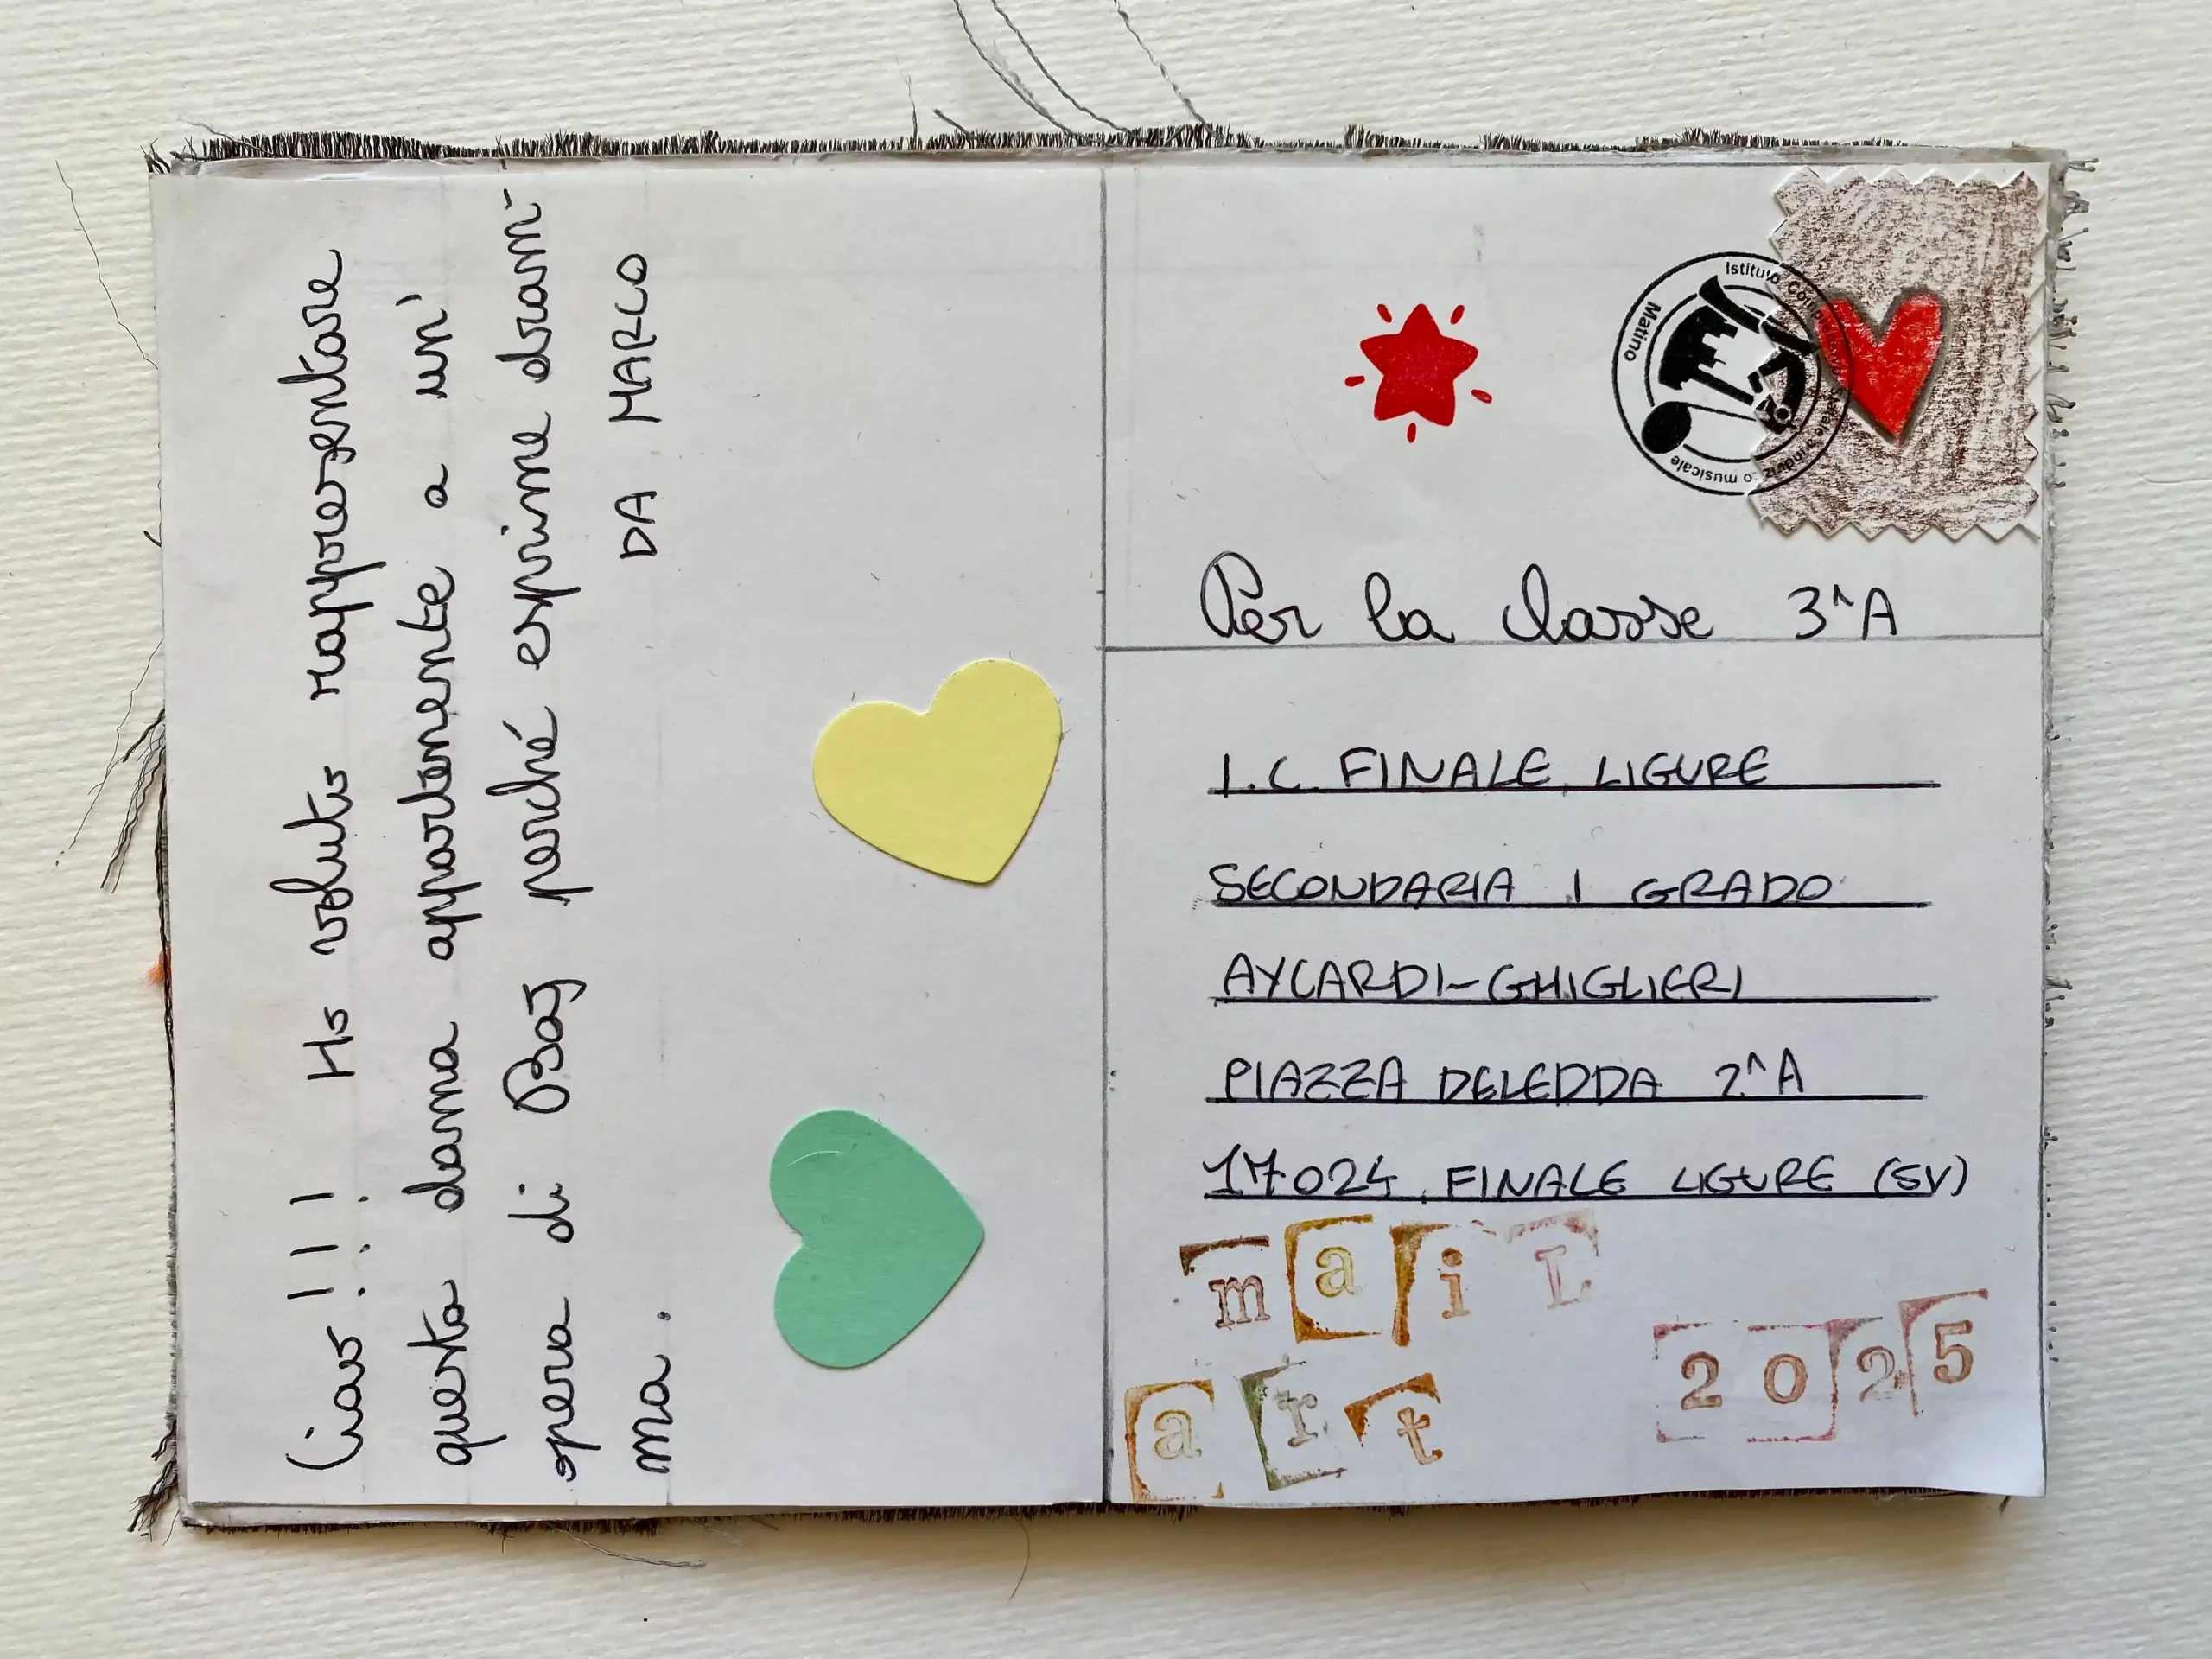 Ciao!!! Ho voluto rappresentare
questa dama appartenente a un'
opera di Baj perché esprime dram-
ma.
DA MARCO
Istituto
Matino
o musicale
Per la classe 3^A
I.C. FINALE LIGURE
SECONDARIA I GRADO
AYCARDI-GHIGLIERI
PIAZZA DELEDDA 2^A
17024 FINALE LIGURE (SV)
mail
art
2025